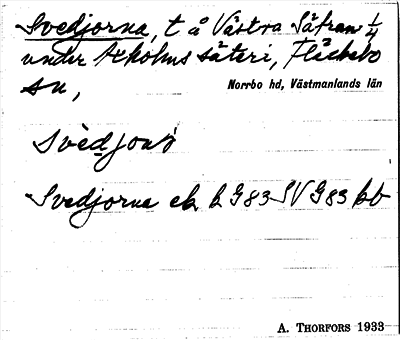 Svedjorna, t å Västra Säfran 1/4
under Axholms säteri, Fläckebo
sn,
Norrbo hd, Västmanlands län
Svedjorna ek b G 83 SV G 83 bb
A. THORFORS 1933